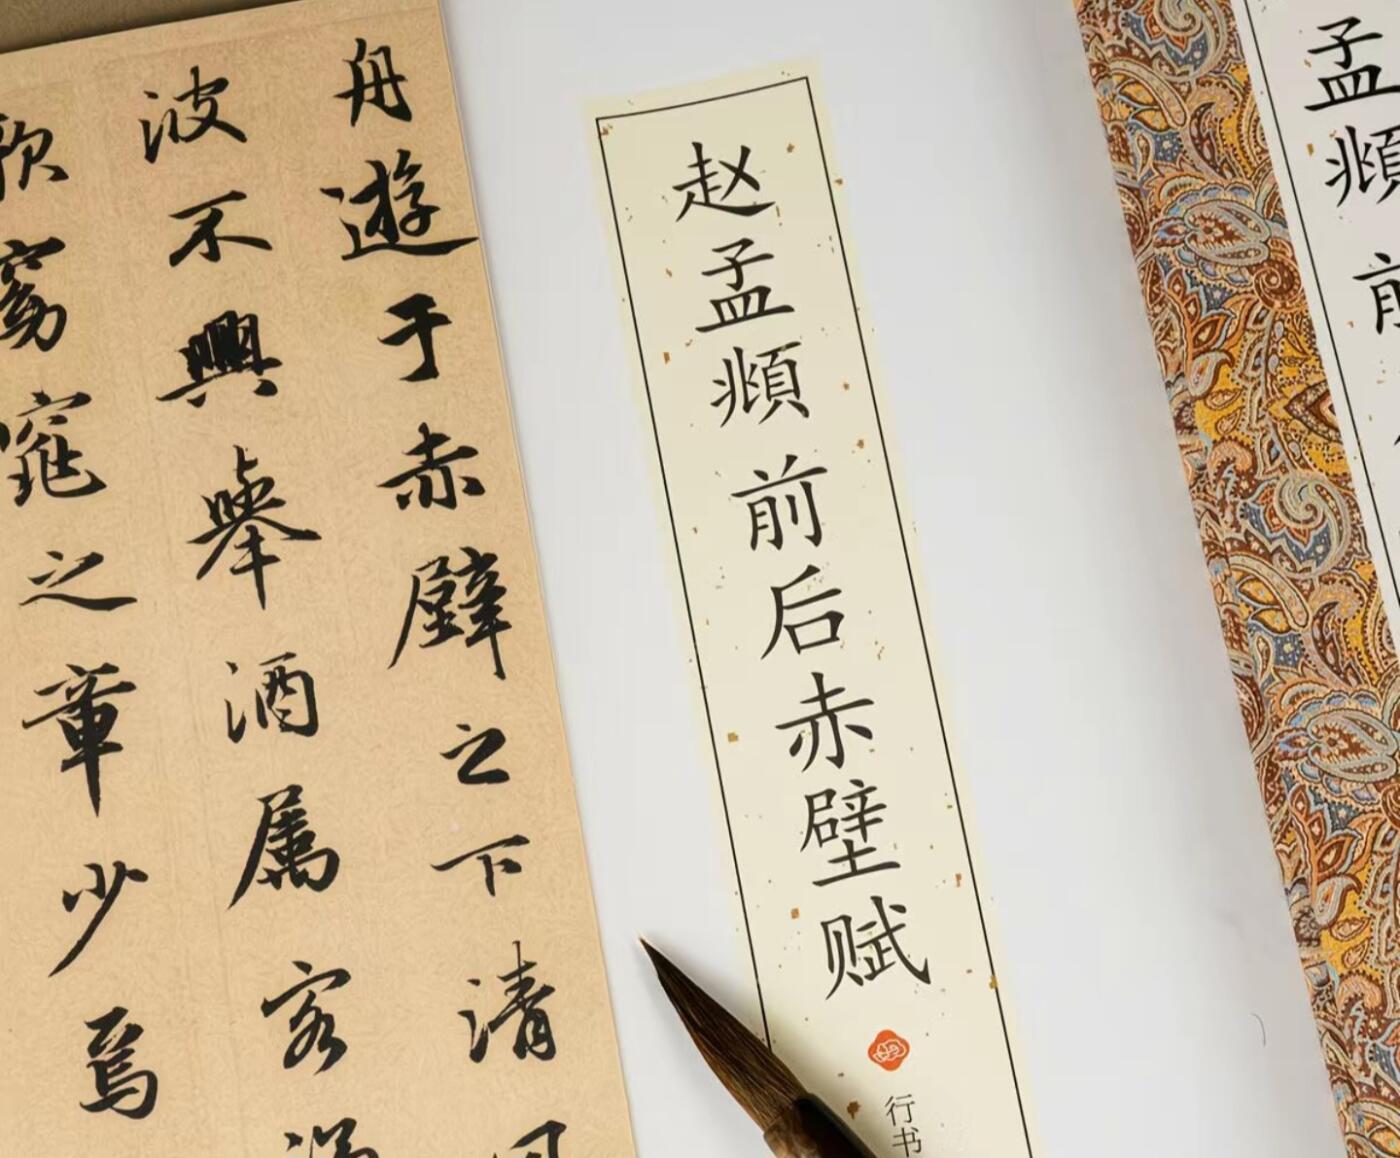 孟頫前
赵孟頫前后赤壁赋
行书
舟遊于赤壁之下清
波不興舉酒属客
歌窈窕之章少焉